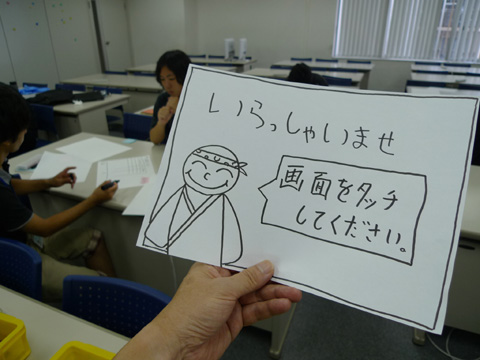 いらっしゃいませ
画面をタッチ
してください。